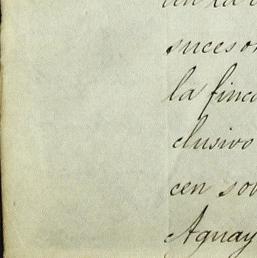 sucesor
la finca
clusivo
cen sob
Aguay